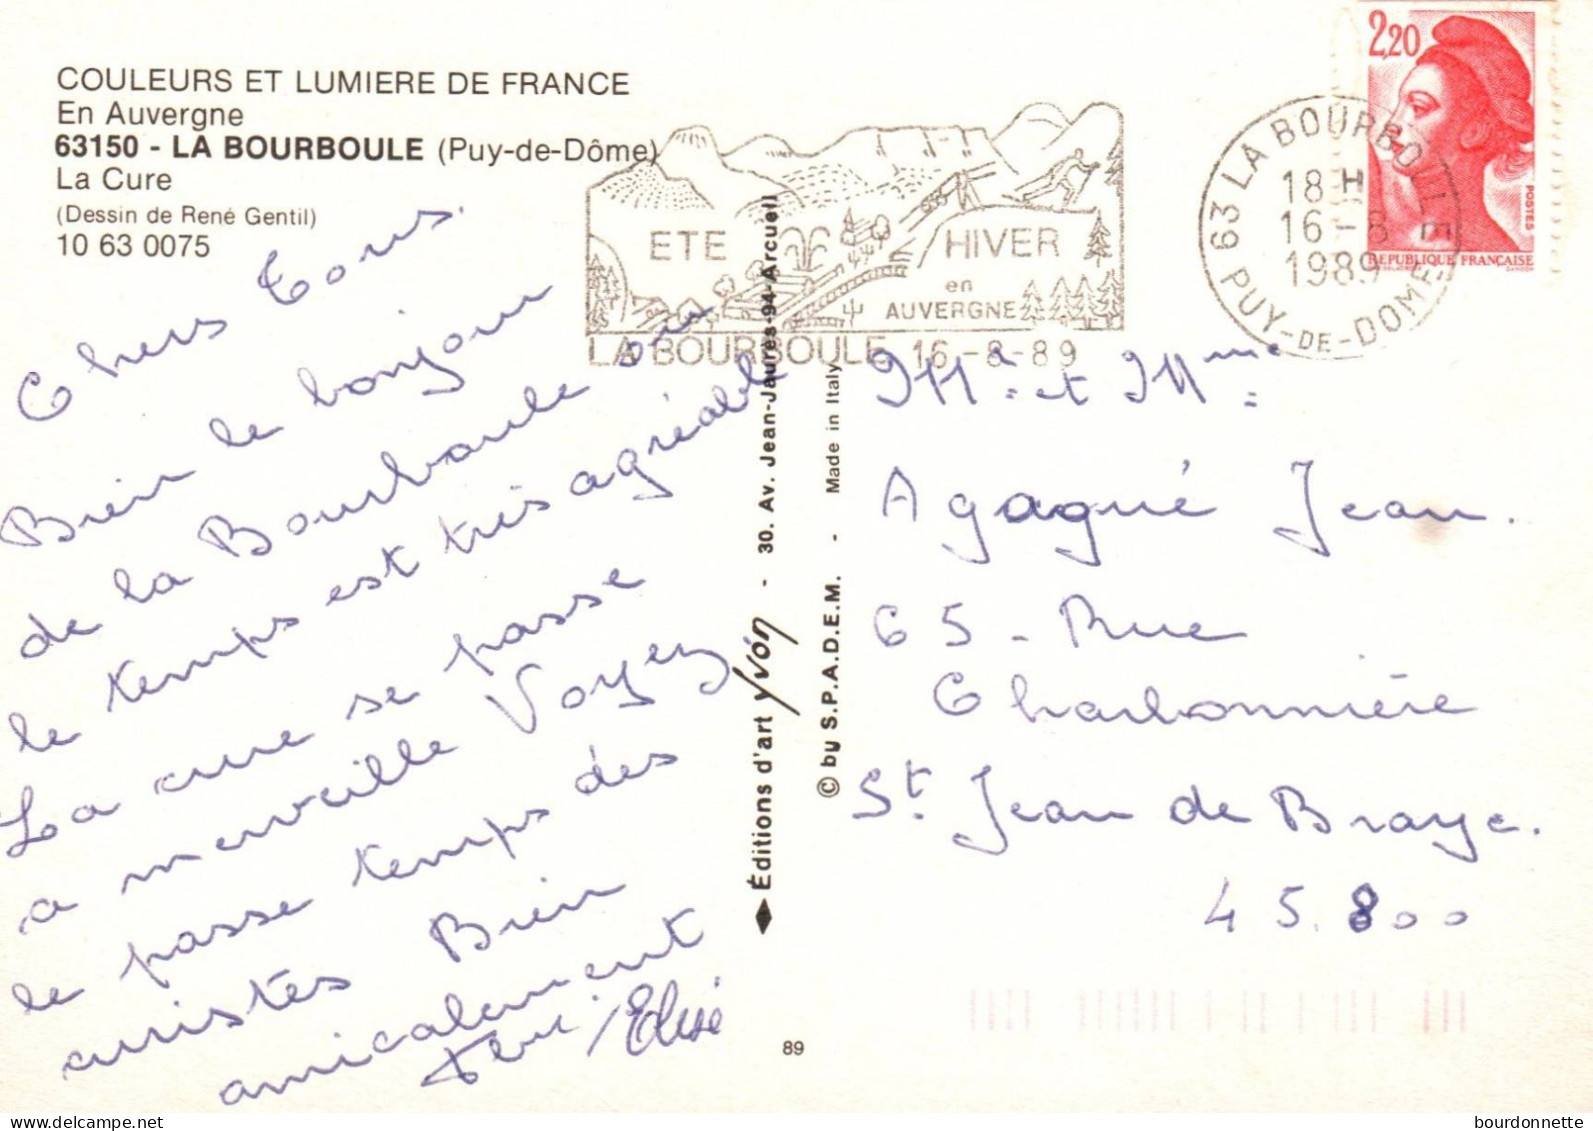 COULEURS ET LUMIERE DE FRANCE
En Auvergne
63150 - LA BOURBOULE (Puy-de-Dôme)
La Cure
(Dessin de René Gentil)
10 63 0075
ETE
HIVER
en
AUVERGNE
LA BOURBOULE 16-8-89
63 LA BOURBOULE
18 H
16-8
1989
PUY-DE-DOME
2,20
POSTES
REPUBLIQUE FRANÇAISE
Chers Tous.
Bien le bonjour
de la Bourboule où
le temps est très agréable
La cure se passe
a merveille Voyez
le passe temps des
curistes Bien
amicalement
Elisé
Éditions d'art Yvon - 30. Av. Jean-Jaurès-94-Arcueil
© by S.P.A.D.E.M. - Made in Italy
Mr et Mme
Agagué Jean.
65 - Rue
Charbonnière
St Jean de Braye.
45.800
89
bourdonnette